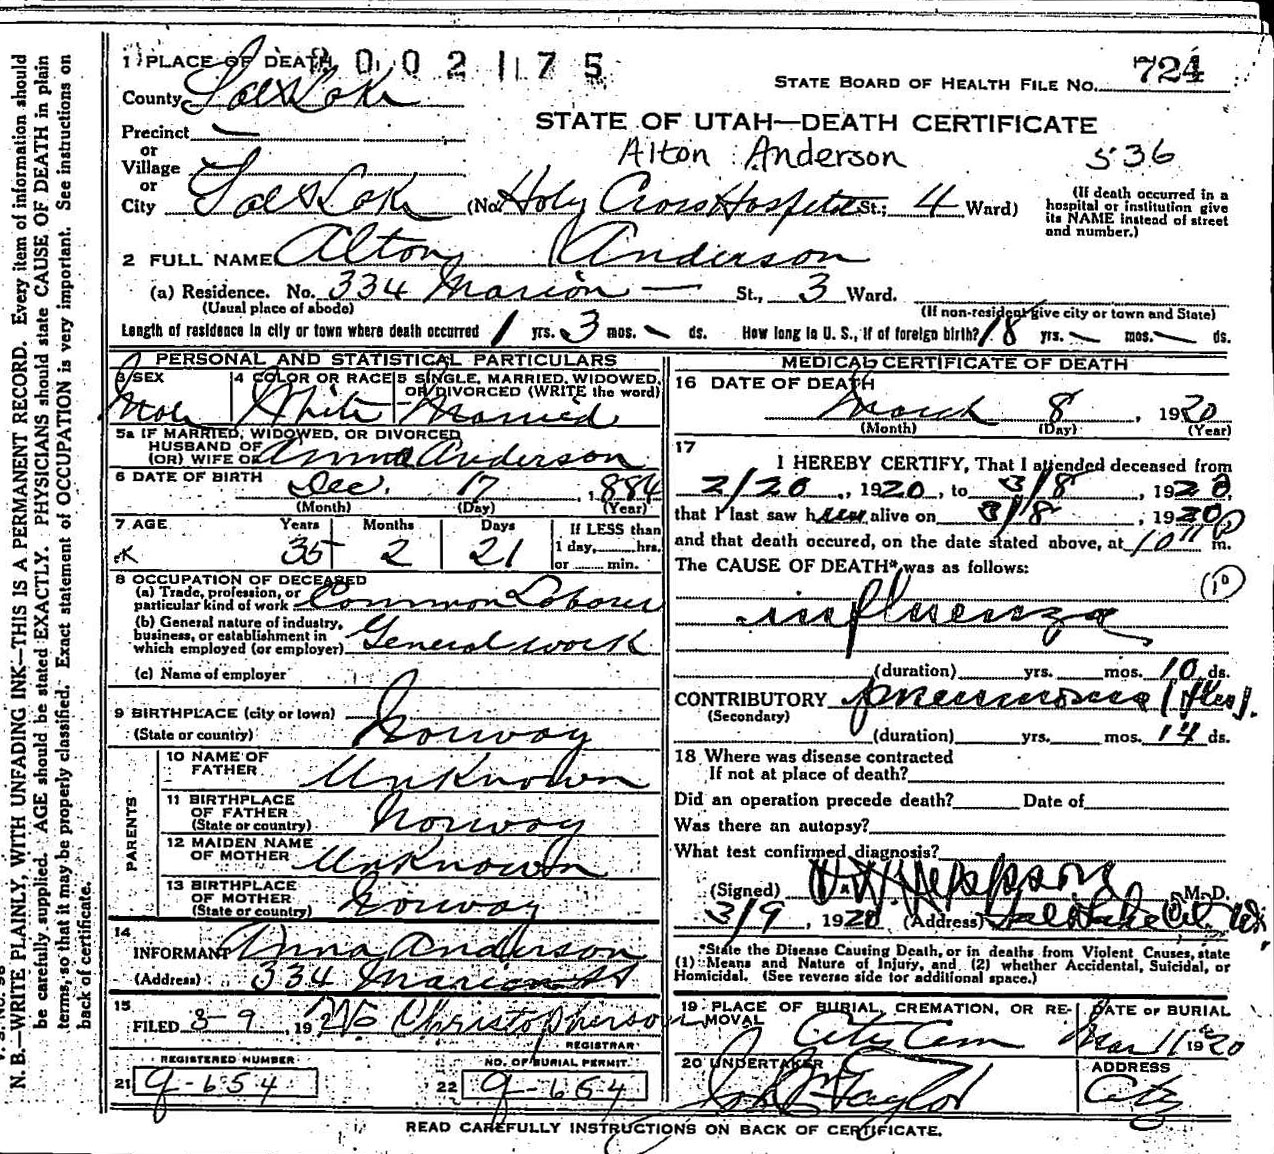 1 PLACE OF DEATH 2002175
STATE BOARD OF HEALTH FILE NO. 724
County Salt Lake
STATE OF UTAH—DEATH CERTIFICATE
Precinct —
or
Village
or
City Salt Lake
Alton Anderson 536
(No. Holy Cross Hospital St.; 4 Ward)
(If death occurred in a
hospital or institution give
its NAME instead of street
and number.)
2 FULL NAME Alton Anderson
(a) Residence. No. 334 Marion — St., 3 Ward.
(Usual place of abode) (If non-resident give city or town and State)
Length of residence in city or town where death occurred 1 yrs. 3 mos. — ds. How long in U. S., if of foreign birth? 18 yrs. — mos. — ds.
PERSONAL AND STATISTICAL PARTICULARS
3 SEX 4 COLOR OR RACE 5 SINGLE, MARRIED, WIDOWED,
OR DIVORCED (WRITE the word)
Male White Married
5a IF MARRIED, WIDOWED, OR DIVORCED
HUSBAND OF
(OR) WIFE OF Anna Anderson
6 DATE OF BIRTH Dec. 17, 1884
(Month) (Day) (Year)
7 AGE Years Months Days If LESS than
1 day, hrs.
or min.
35 2 21
8 OCCUPATION OF DECEASED
(a) Trade, profession, or
particular kind of work Common Laborer
(b) General nature of industry,
business, or establishment in
which employed (or employer) General work
(c) Name of employer
9 BIRTHPLACE (city or town)
(State or country) Norway
PARENTS
10 NAME OF
FATHER Unknown
11 BIRTHPLACE
OF FATHER
(State or country) Norway
12 MAIDEN NAME
OF MOTHER Unknown
13 BIRTHPLACE
OF MOTHER
(State or country) Norway
14
INFORMANT Anna Anderson
(Address) 334 Marion St
15
FILED 3-9, 192 Christopherson
REGISTRAR
REGISTERED NUMBER NO. OF BURIAL PERMIT.
21 9-654 22 9-654
MEDICAL CERTIFICATE OF DEATH
16 DATE OF DEATH
March 8, 1920
(Month) (Day) (Year)
17
I HEREBY CERTIFY, That I attended deceased from
2/20, 1920, to 3/8, 1920,
that I last saw him alive on 3/8, 1920,
and that death occured, on the date stated above, at 10 P m.
The CAUSE OF DEATH* was as follows:
10
influenza
(duration) yrs. mos. 10 ds.
CONTRIBUTORY pneumonia
(Secondary)
(duration) yrs. mos. 14 ds.
18 Where was disease contracted
If not at place of death?
Did an operation precede death? Date of
Was there an autopsy?
What test confirmed diagnosis?
(Signed) Jeppson M. D.
3/9, 1920 (Address) Salt Lake City, Ut
*State the Disease Causing Death, or in deaths from Violent Causes, state
(1) Means and Nature of Injury, and (2) whether Accidental, Suicidal, or
Homicidal. (See reverse side for additional space.)
19 PLACE OF BURIAL, CREMATION, OR RE-
MOVAL City Cem
DATE OF BURIAL
Mar 11 1920
20 UNDERTAKER Taylor
ADDRESS
City
READ CAREFULLY INSTRUCTIONS ON BACK OF CERTIFICATE.
N. B.—WRITE PLAINLY, WITH UNFADING INK—THIS IS A PERMANENT RECORD. Every item of information should
be carefully supplied. AGE should be stated EXACTLY. PHYSICIANS should state CAUSE OF DEATH in plain
terms, so that it may be properly classified. Exact statement of OCCUPATION is very important. See instructions on
back of certificate.